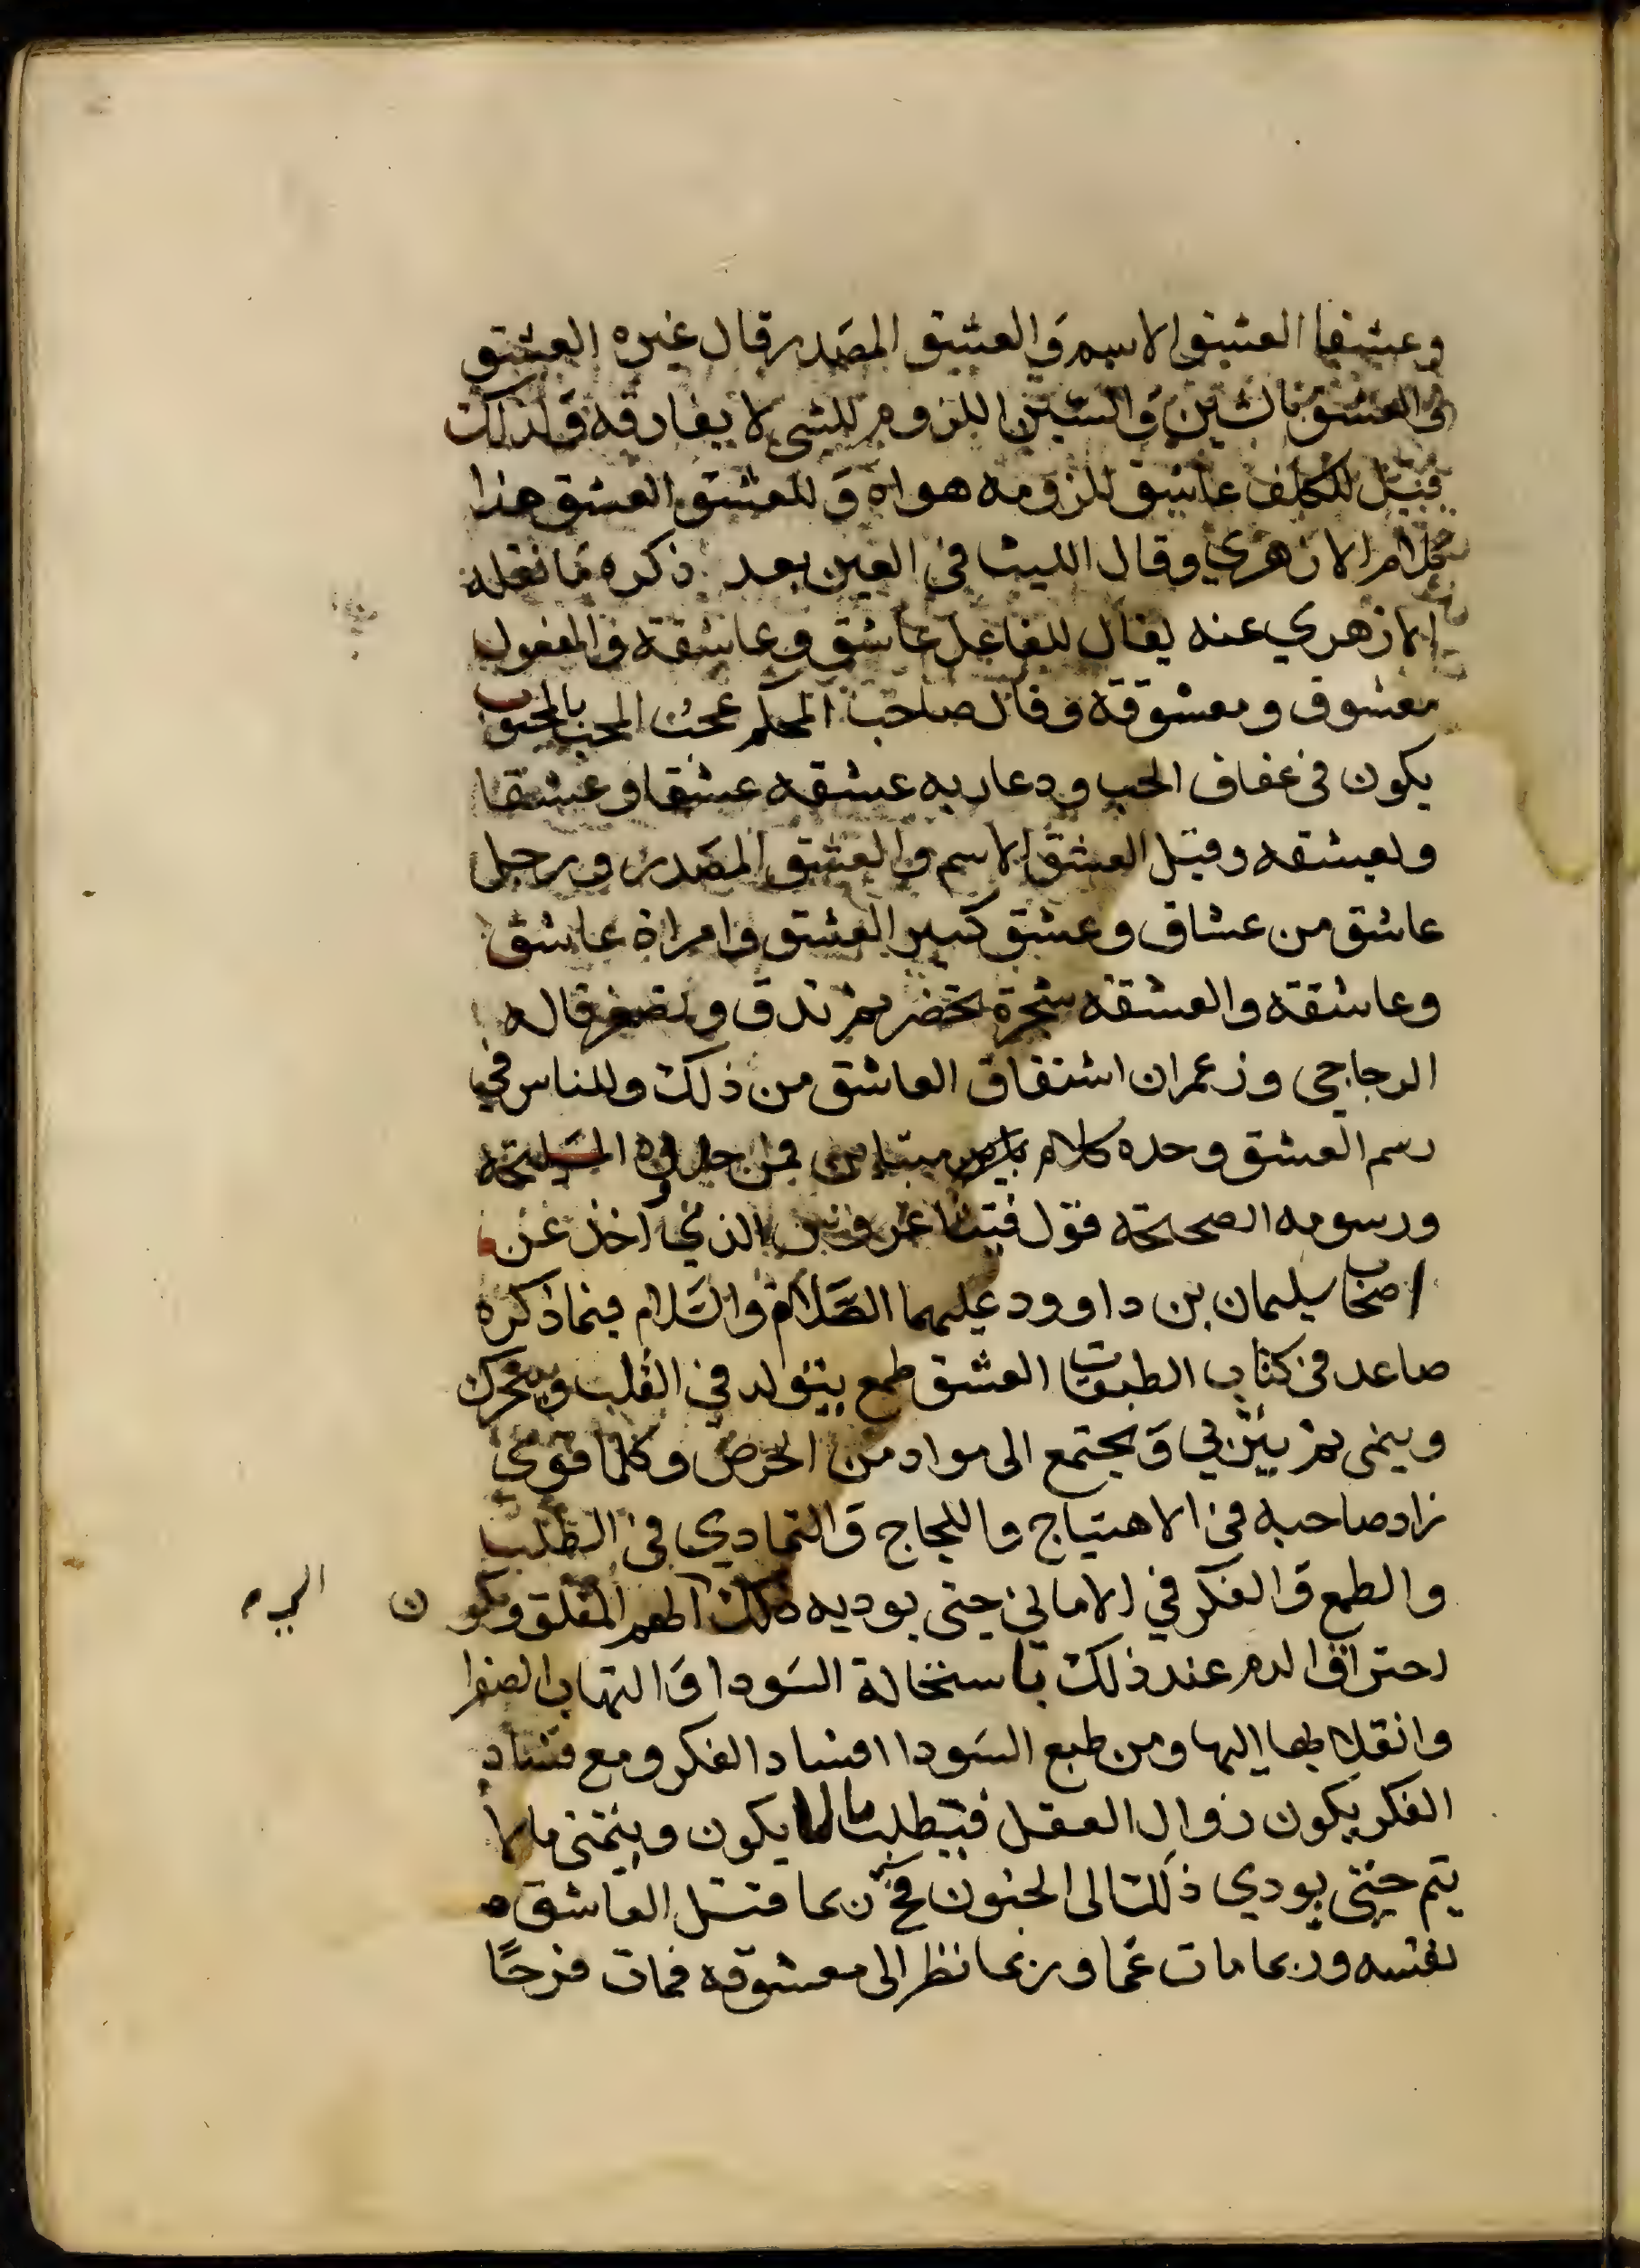 وعشقا العشق الاسم والعشق المصدر قال غيره العشق
والعسق بالشين والسين اللزوم للشي لا يفارقه ولذلك
قيل للكلف عاشق للزومه هواه و للعشق العسق هذا
كلام الازهري وقال الليث في العين بعد ذكره ما نقله
الازهري عنه يقال للفاعل عاشق وعاشقة والمفعول
معشوق ومعشوقة وقال صاحب المحكم عجب المحب بالمحبوب
يكون في عفاف الحب ودعارته عشقه عشقا وعشقا
وتعشقه وقيل العشق الاسم والعشق المصدر ورجل
عاشق من عشاق وعشيق كثير العشق وامراة عاشق
وعاشقة والعشقه شجرة تخضر ثم تدق وتصفر قاله
الزجاجي وزعم ان اشتقاق العاشق من ذلك وللناس في
رسم العشق وحده كلام متباين فمن حدوده
ورسومه الصحيحة قول فيثاغورس الذي اخذ عن
اصحاب سليمان بن داوود عليهما الصلاة والسلام فيما ذكره
صاعد في كتاب الطبقات العشق طمع يتولد في القلب ويتحرك
وينمى ثم يتربي ويجتمع الى مواد من الحرص وكلما قوي
زاد صاحبه في الاهتياج واللجاج والتمادي في الطلب
والطمع والفكر في الاماني حتى يوديه ذلك الى الهم المقلق ويكون
احتراق الدم عند ذلك باستحالة السودا والتهاب الصفرا
وانقلابها اليها ومن طبع السودا افساد الفكر ومع فساد
الفكر يكون زوال العقل فيطلب مالا يكون ويتمنى مالا
يتم حتى يودي ذلك الى الجنون فح ربما قتل العاشق
نفسه وربما مات غما وربما نظر الى معشوقه فمات فرحا